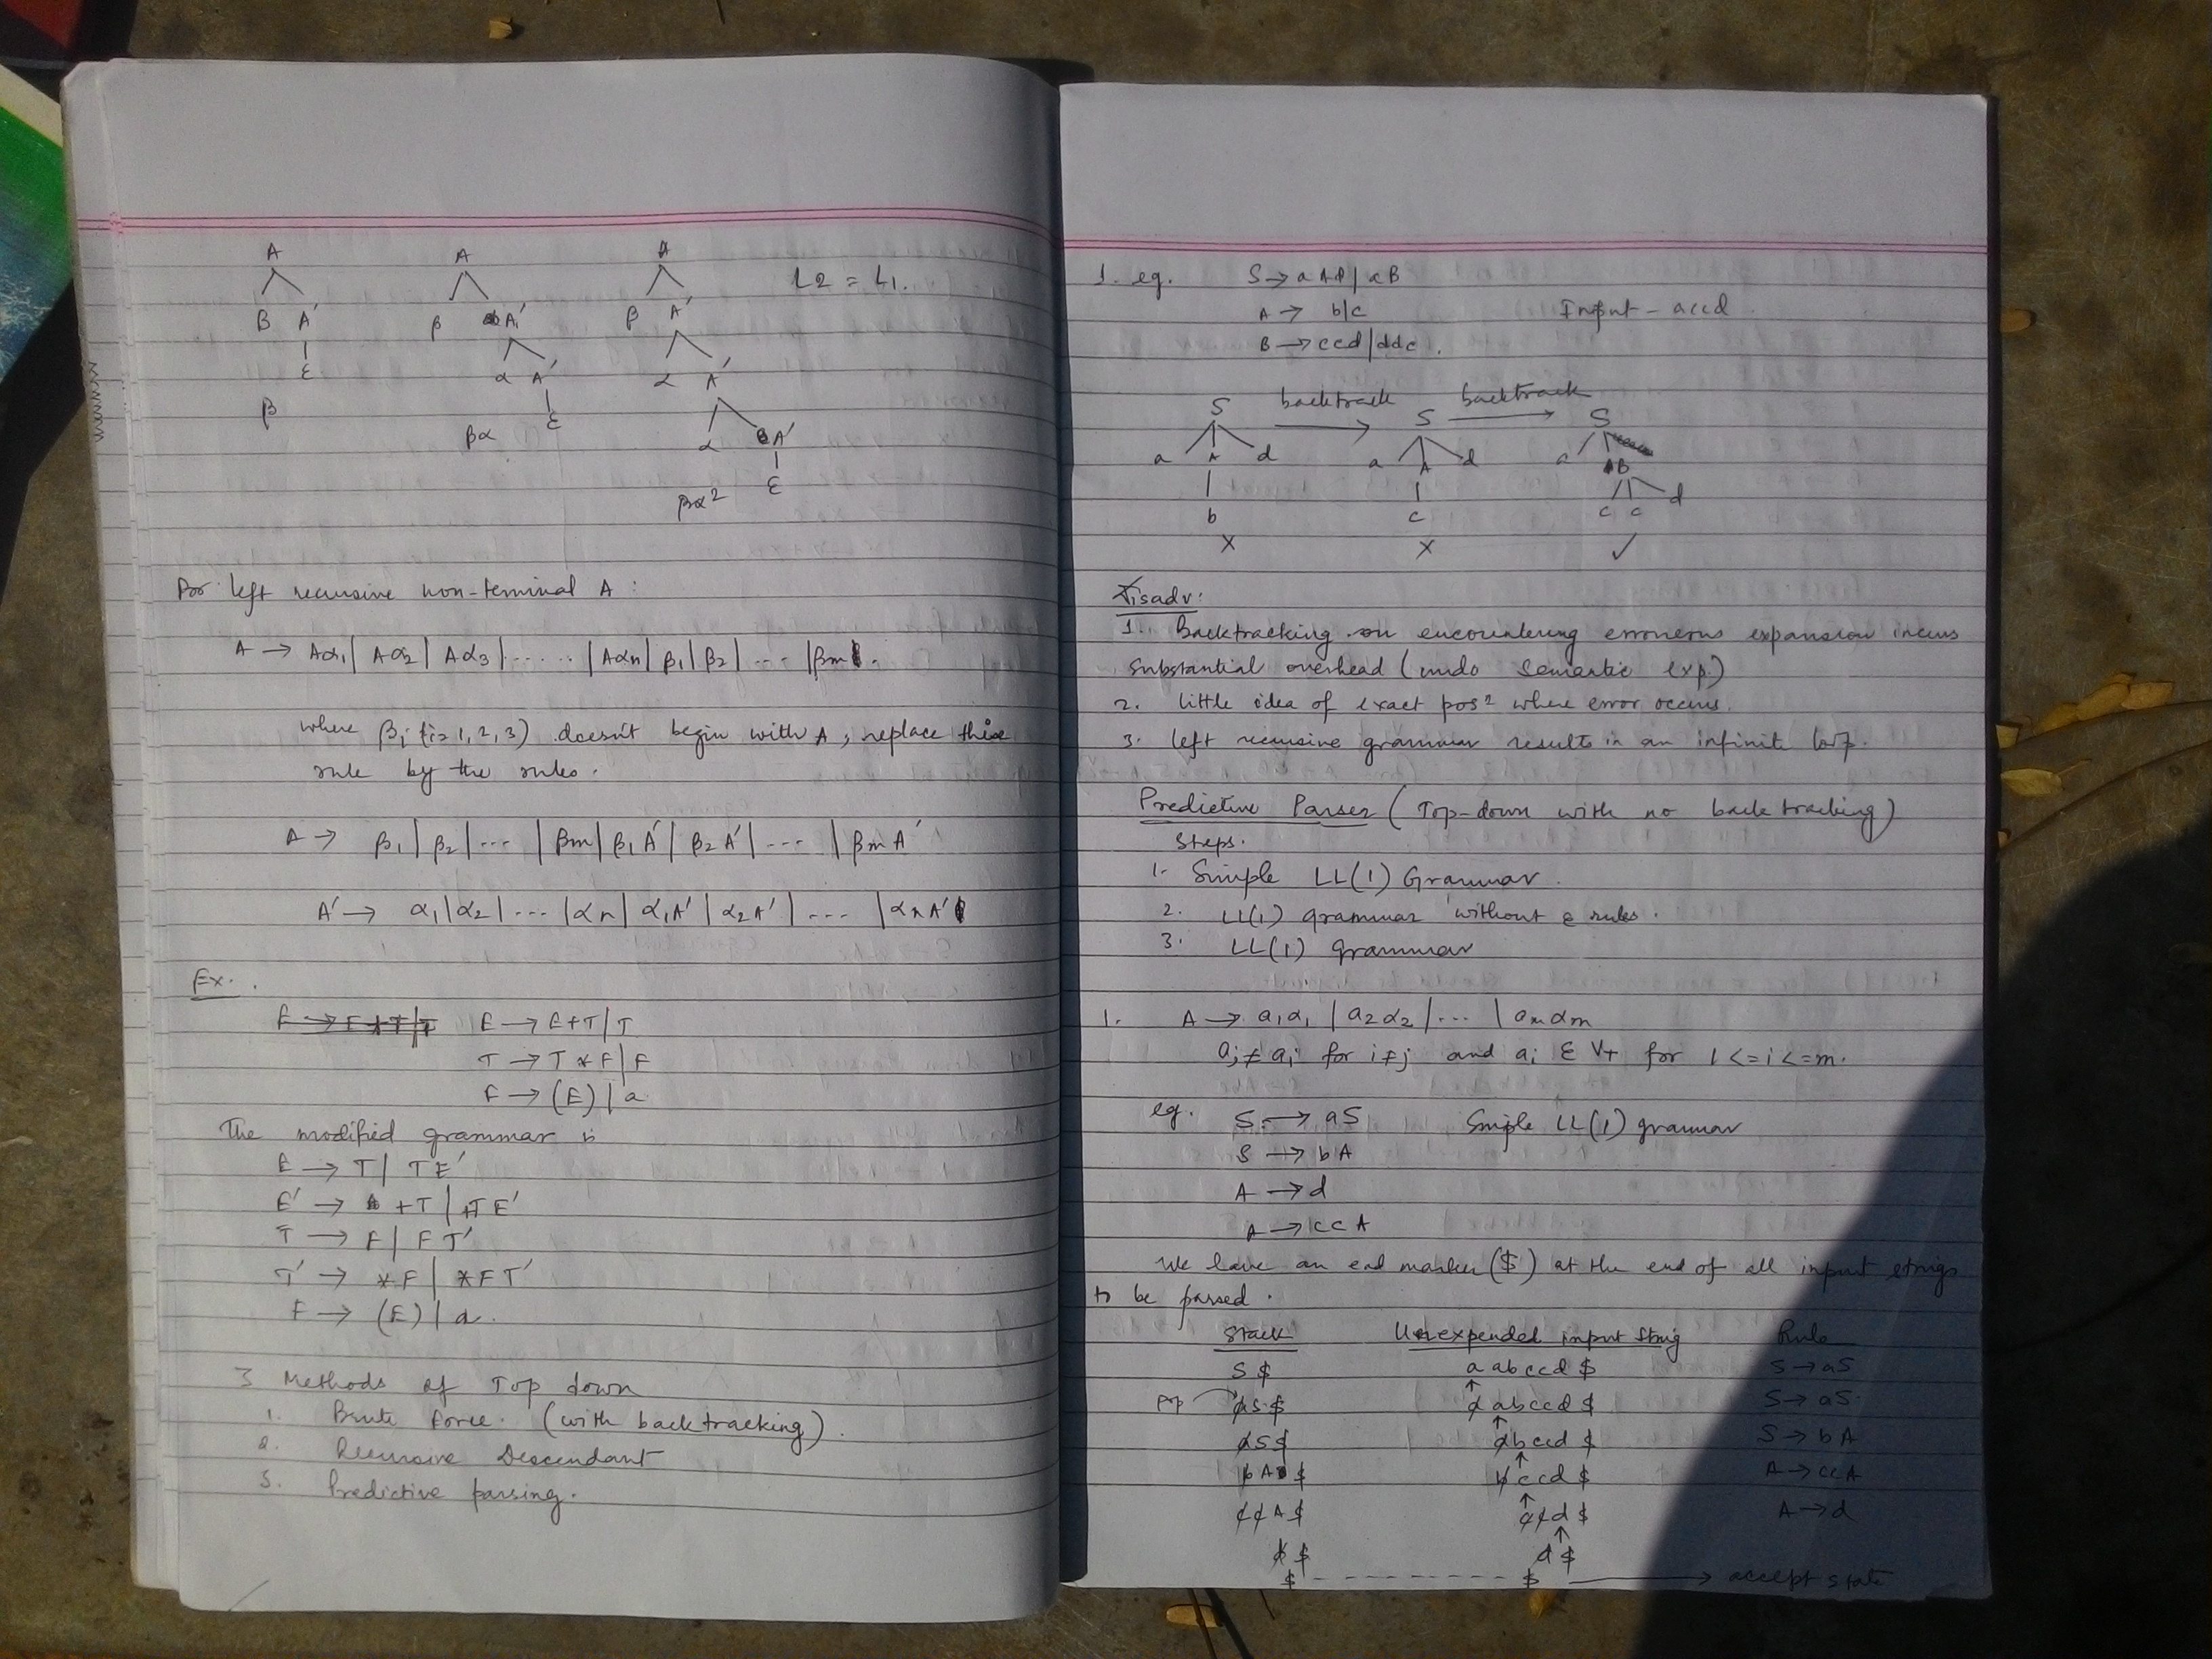 A A A
β A' β A' β A' L2 = L1.
ε α A' α A'
β ε α A'
βα ε
βα²
For left recursive non-terminal A :
A → Aα1 | Aα2 | Aα3 | ...... | Aαn | β1 | β2 | ... | βm.
where βi (i=1,2,3) doesn't begin with A, replace these
rule by the rules.
A → β1 | β2 | ... | βm | β1A' | β2A' | ... | βmA'
A' → α1 | α2 | ... | αn | α1A' | α2A' | ... | αnA'
Ex.
E → E+T | T
T → T*F | F
F → (E) | a
The modified grammar is
E → T | TE'
E' → +T | +TE'
T → F | FT'
T' → *F | *FT'
F → (E) | a.
3 Methods of Top down
1. Brute Force. (with backtracking).
2. Recursive Descendant
3. Predictive parsing.
1. eg. S → aAd | aB
A → b|c Input - accd
B → ccd | ddc.
S backtrack S backtrack S
a A d a A d a B
b c c c d
X X ✓
Disadv:
1. Backtracking on encountering erroneous expansion incurs
substantial overhead (undo semantic exp.)
2. little idea of exact posn where error occurs.
3. left recursive grammar results in an infinite loop.
Predictive Parser (Top-down with no backtracking)
Steps.
1. Simple LL(1) Grammar.
2. LL(1) grammar without ε rules.
3. LL(1) grammar
1. A → a1α1 | a2α2 | ... | amαm
aj ≠ ai for i≠j and ai ∈ Vt for 1<=i<=m.
eg. S → aS Simple LL(1) grammar
S → bA
A → d
A → ccA
We have an end marker ($) at the end of all input strings
to be parsed.
Stack Unexpended input string Rule
S$ aabccd$ S → aS
pop aS$ aabccd$ S → aS.
aS$ abccd$ S → bA
bA$ bccd$ A → ccA
ccA$ ccd$ A → d
d$ d$
$ ------ $ → accept state